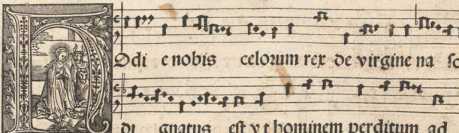 Odi e nobis celoꝛum rex de virgine na ſc
di gnatus eſt v t hominem perditum ad